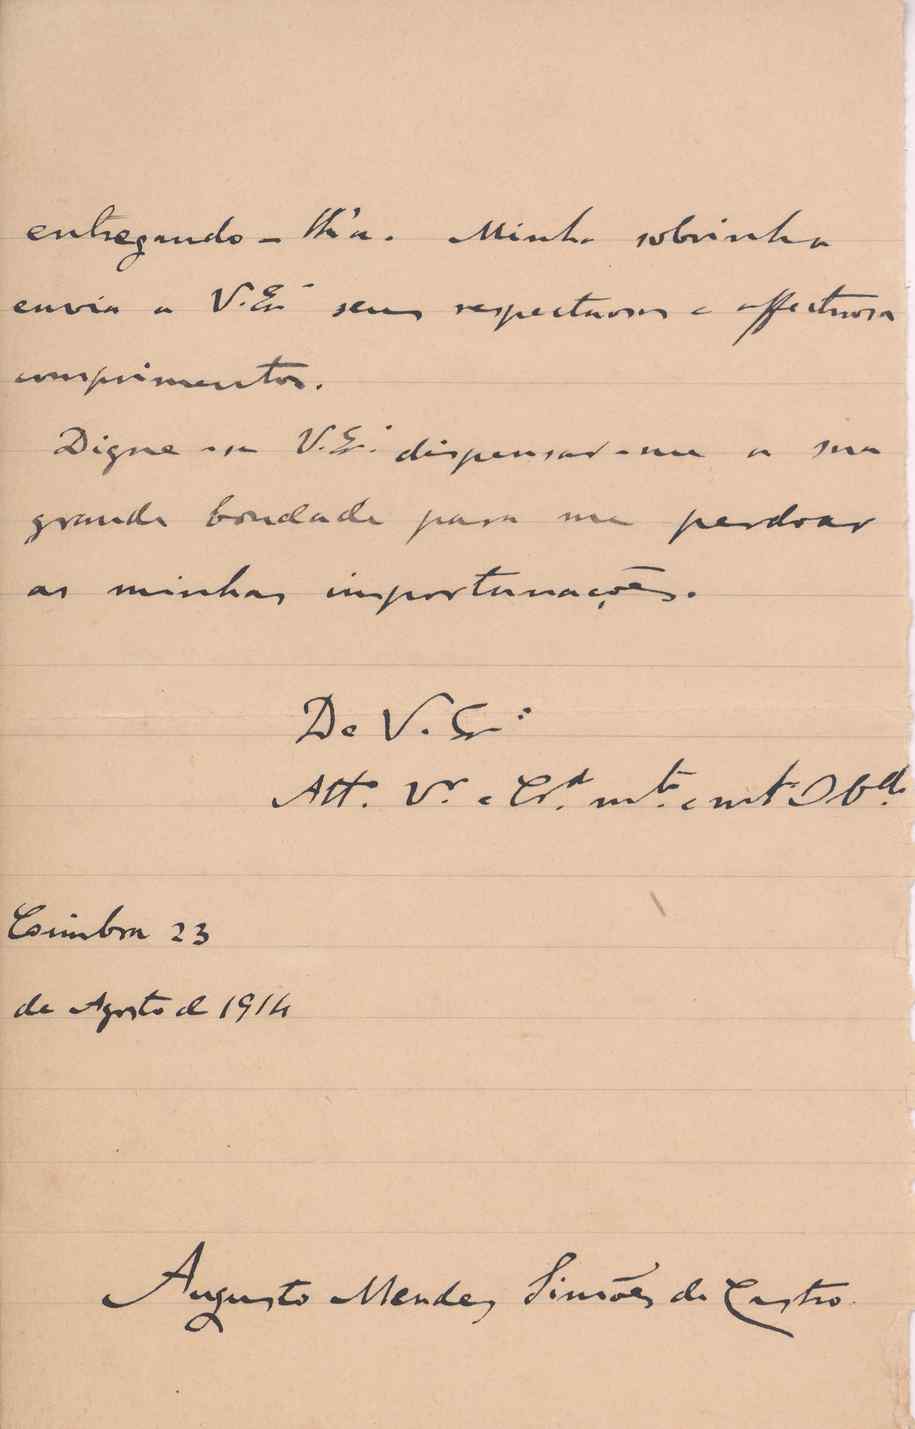 entregando-lh'a. Minha sobrinha
envia a V. Ex.ª seus respectuosos e affectuosos
comprimentos.
Digne-se V. Ex.ª dispensar-me a sua
grande bondade para me perdoar
as minhas importunações.
De V. Ex.ª
Att.º V.or e Cr.do m.to e m.to Ob.do
Coimbra 23
de Agosto de 1914
Augusto Mendes Simões de Castro.